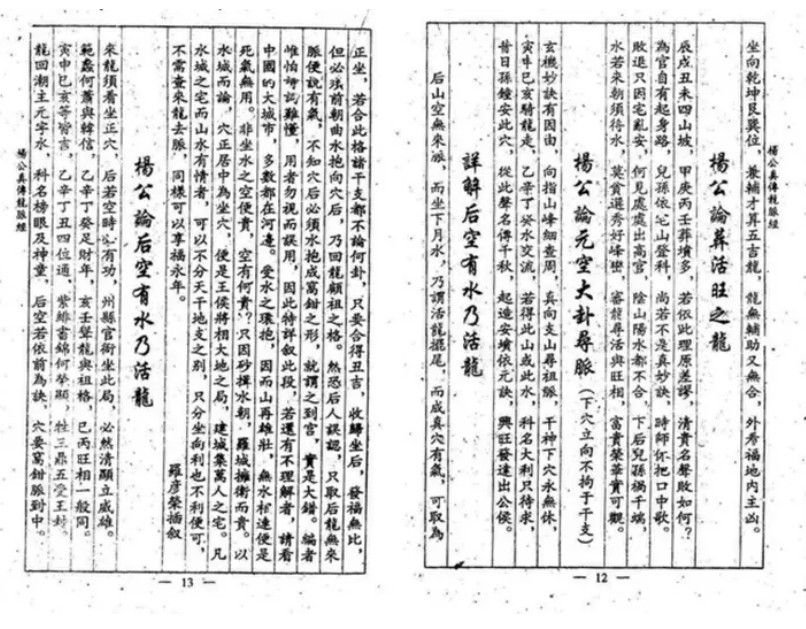 楊公真傳龍脈經
坐向乾坤艮巽位，兼輔才算五吉龍，龍無輔助又無合，外秀福地內主凶。
楊公論葬活旺之龍
辰戌丑未四山坡，甲庚丙壬葬墳多，若依此理原差謬，清貴名聲敗如何？
為官自有起身路，兒孫依它山登科，尚若不是真妙訣，時師休把口中歌。
敗退只因宅亂安，何見處處出高官，陰山陽水都不合，下后兒孫禍千端，
水若來朝須待水，莫貪遠秀好峰巒，審龍葬活與旺相，富貴榮華實可觀。
楊公論元空大卦尋脈（下穴立向不拘于干支）
玄機妙訣有因由，向指山峰細查周，真向支山尋祖脈，干神下穴永無休，
寅申巳亥騎龍走，乙辛丁癸水交流，若得此山或此水，科名大利只待求，
昔日孫鐘安此穴，從此聲名傳千秋，起造安墳依元訣，興旺發達出公侯。
詳解后空有水乃活龍
后山空無來脈，而坐下月水，乃謂活龍擺尾，而成真穴有氣，可取為
— 12 —
正坐，若合此格諸干支都不論何卦，只要合得丑吉，收歸坐后，發福無比，
但必須前朝曲水抱向穴后，乃回龍顧祖之格。然恐后人誤認，只取后龍無來
脈便說有氣，不知穴后必須水抱成窩鉗之形，就謂之到宮，實是大錯。編者
惟怕 難懂，用者勿視而誤用，因此特詳叙此段，若還有不理解者，請看
中國的大城市，多數都在河邊。受水之環抱，因而山再雄壯，無水相連便是
死氣無用。非坐水之空便貴，空有何貴？只因砂揖水朝，羅城擁衛而貴。以
水城而論，穴正居中為坐穴，便是王侯將相大地之局，建城集萬人之宅。凡
水城之宅而山水有情者，可以不分天干地支之別，只分坐向利也不利便可，
不需查來龍去脈，同樣可以享福永年。
羅彥榮插叙
楊公論后空有水乃活龍
來龍須看坐正穴，后若空時必有功，州縣官衙坐此局，必然清顯立威雄。
範蠡何蕭與韓信，乙辛丁癸足財年，亥壬聳龍與祖格，巳丙旺相一般同。
寅申巳亥等皆言，乙辛丁丑四位通，紫緋書錦何榮顯，牲三鼎五受王封。
龍回潮主元字水，科名榜眼及神童，后空若依前為訣，穴要窩鉗脈到中。
楊公真傳龍脈經
— 13 —